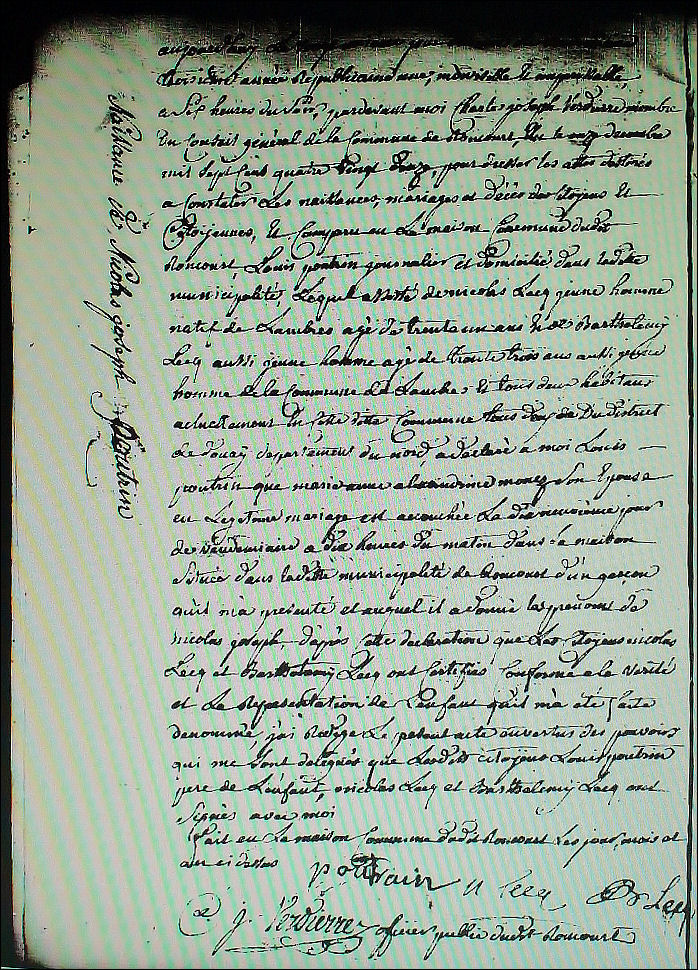 Naissance de Nicolas joseph Poutrin
aujourdhuy
troisieme année Republicaine une, indivisible et imperissable
a Six heures du Soir, pardevant moi Charle joseph Verdierre membre
Du Conseil général de la Commune de Roncourt, Elu le onze decembre
mil Sept Cent quatre Vingt Douze, pour dresser les actes destinés
a Constater Les naissances, mariages et décès des Citoyens Et
Citoyennes, Est Comparu en La maison Commune dudit
Roncourt Louis poutrin journalier et domicilié dans laditte
municipalité, Lequel assisté de nicolas Lecq jeune homme
natif de Lambres agé de trente un ans et de Barthelemy
Lecq aussi jeune homme agé de trente trois ans aussi jeune
homme de la Commune de Lambres Et tous deux habitans
actuellement En Cette ditte Commune tous deux Du District
de Douay departement du nord, a declaré a moi Louis
poutrin que marie anne alexandrine monez Son Epouse
en Legitime mariage est accouchée La dix neuvieme jour
de Vendemiaire a dix heures du matin dans sa maison
Située dans laditte municipalité de Roncourt d'un garcon
qu'il m'a presenté et auquel il a donné les prenoms de
nicolas joseph, d'après cette declaration que Les Citoyens nicolas
Lecq et Barthelemy Lecq ont Certifiés Conforme a la Verité
et La Representation de L'enfant qu'il m'a été faite
denommé, j'ai Redigé Le present acte en vertus des pouvoirs
qui me Sont delegués que Lesdits citoyens Louis poutrin
pere de L'enfant, nicolas Lecq et Barthelemy Lecq ont
Signés avec moi
Fait en La maison Commune dudit Roncourt Les jour, mois et
an ci dessus
poutrain n lecq B Lecq
C j. Verdierre officier public dudit Roncourt